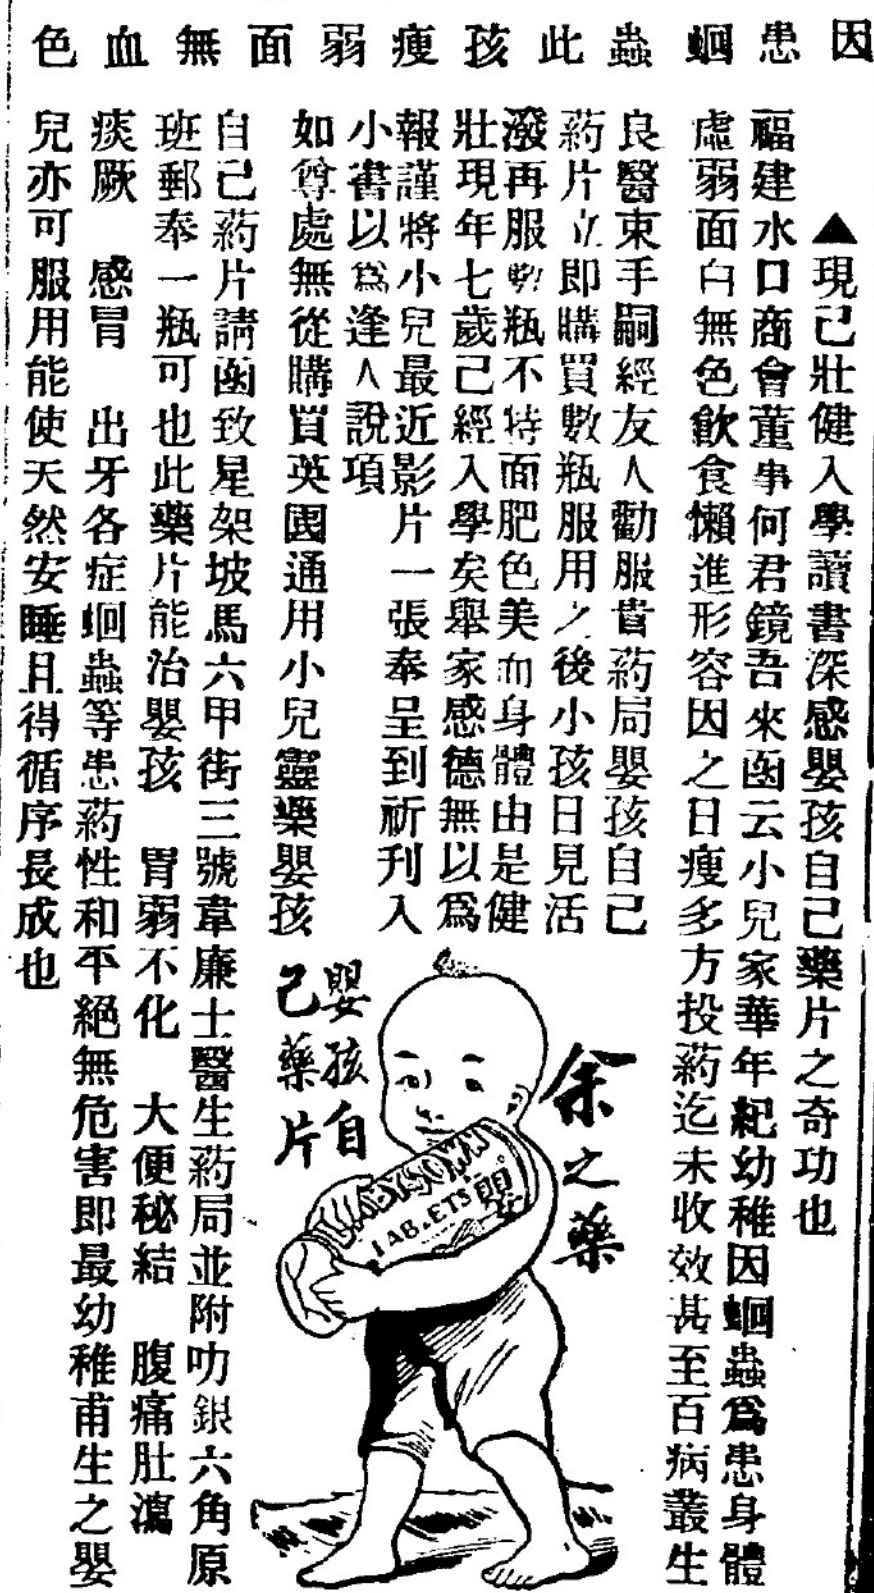 因患蛔蟲此孩瘦弱面無血色
▲現己壯健入學讀書深感嬰孩自己藥片之奇功也
福建水口商會董事何君鏡吾來函云小兒家華年紀幼稚因蛔蟲爲患身體
虛弱面白無色飲食懶進形容因之日瘦多方投葯迄未收效甚至百病叢生
良醫束手嗣經友人勸服貴葯局嬰孩自己
葯片立即購買數瓶服用之後小孩日見活
潑再服數瓶不特面肥色美而身體由是健
壯現年七歲己經入學矣舉家感德無以爲
報謹將小兒最近影片一張奉呈到祈刊入
小書以爲逢人說項
如尊處無從購買英國通用小兒靈藥嬰孩
自己葯片請函致星架坡馬六甲街三號韋廉士醫生葯局並附叻銀六角原
班郵奉一瓶可也此藥片能治嬰孩 胃弱不化 大便秘結 腹痛肚瀉
痰厥 感冒 出牙各症蛔蟲等患葯性和平絕無危害即最幼稚甫生之嬰
兒亦可服用能使天然安睡且得循序長成也
余之藥
嬰孩自
己藥片
BABYSOWN
TABLETS